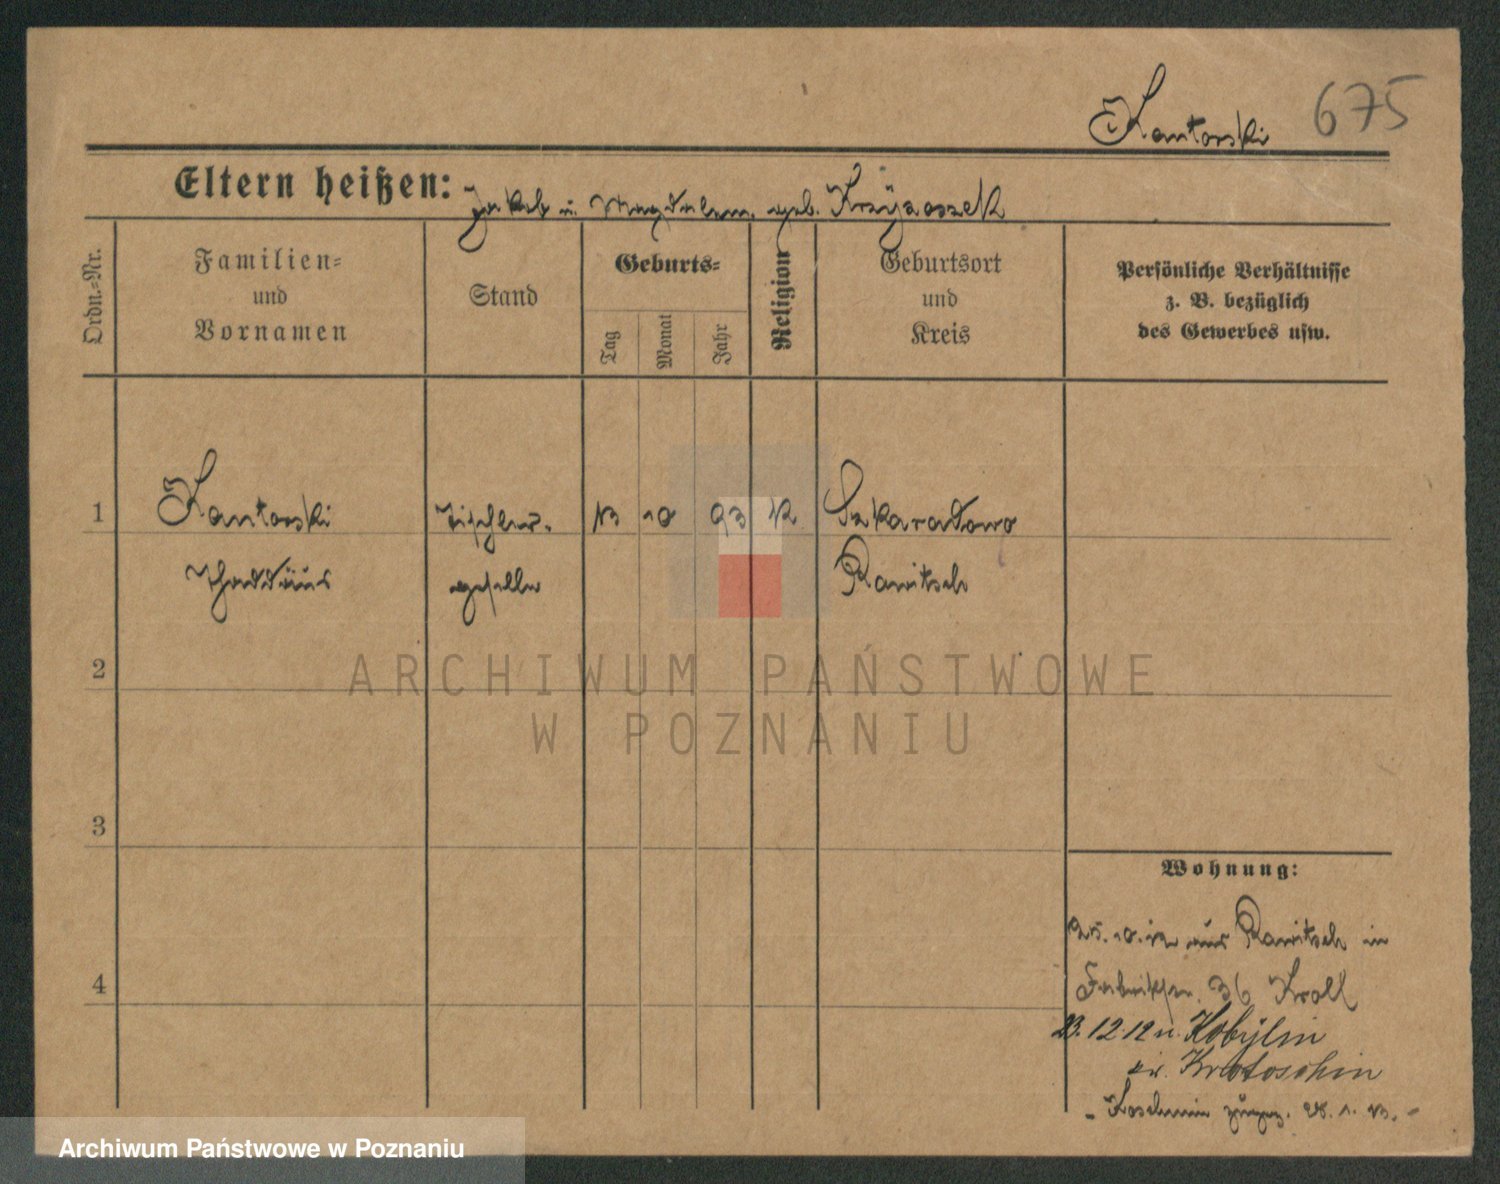 Kantorski 675
Eltern heißen: Jakob u. Magdalena, geb. Krzyżoszek
Ordn.=Nr.
Familien=
und
Vornamen
Stand
Geburts=
Tag
Monat
Jahr
Religion
Geburtsort
und
Kreis
Persönliche Verhältnisse
z. B. bezüglich
des Gewerbes usw.
1 Kantorski Tischler- 13 10 93 K Szkaradowo
Thaddäus geselle Rawitsch
2
ARCHIWUM PAŃSTWOWE
W POZNANIU
3
Wohnung:
25.10.12 aus Rawitsch in
4
Fabrikstr. 36 Kroll
23.12.12 n. Kobylin
Kr. Krotoschin
- Koschmin 28.1.13. -
Archiwum Państwowe w Poznaniu